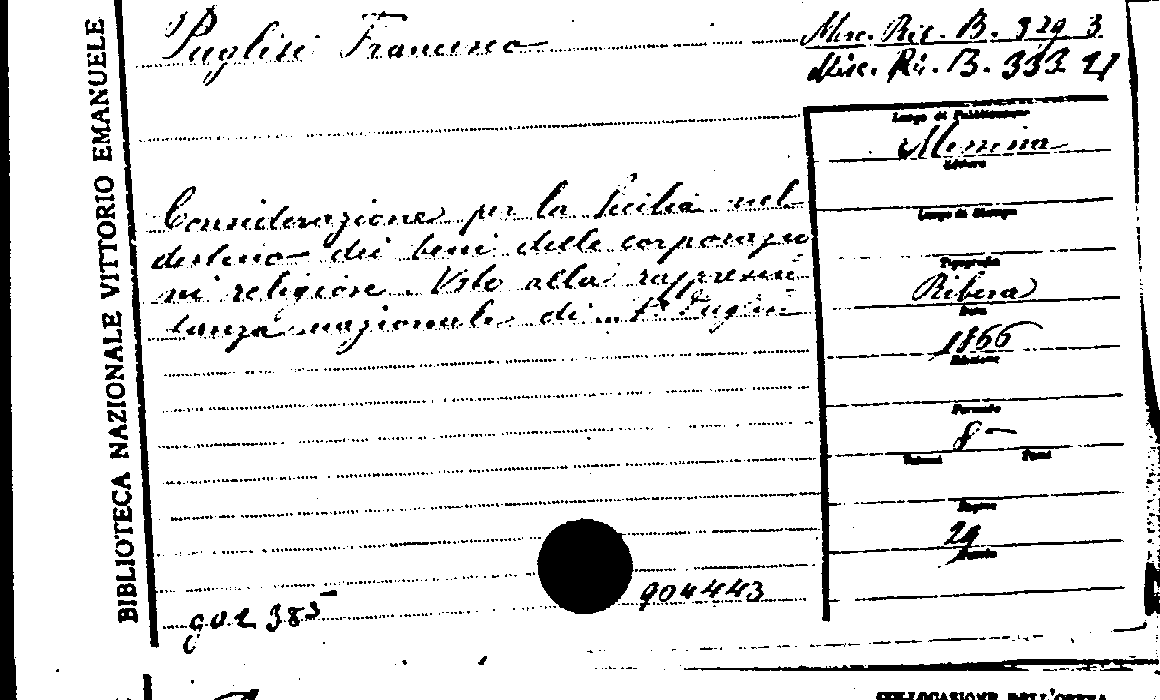 BIBLIOTECA NAZIONALE VITTORIO EMANUELE
Puglisi Francesco
Misc. Ris. B. 329 3
Misc. Ri. B. 333 21
Considerazione per la Sicilia nel
destino dei beni delle corporazio
ni religiose. Voto alla rappresen
tanza nazionale di F. Puglisi
Luogo di Pubblicazione
Messina
Editore
Luogo di Stampa
Tipografia
Ribera
Data
1866
Edizione
Formato
8
Volumi Tomi
Pagine
29
902385
904443
COLLOCAZIONE DELL'OPERA